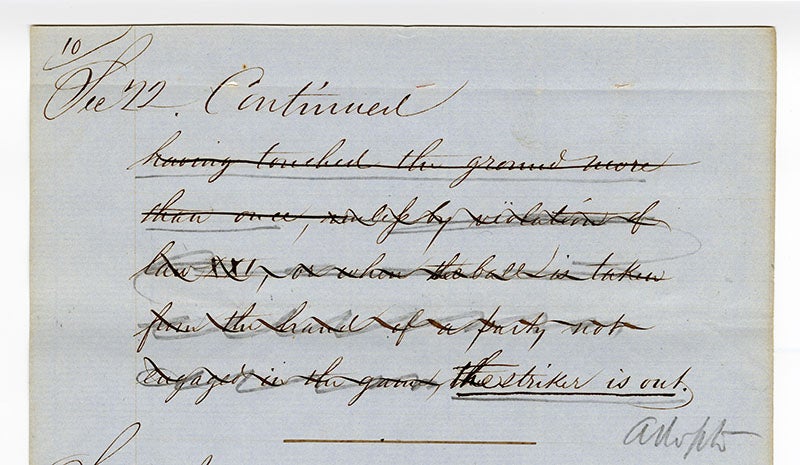 10
Sec 22. Continued
having touched the ground more
than once, unless by violation of
law XXI, or when the ball is taken
from the hand of a party not
engaged in the game, the striker is out.
Adopted